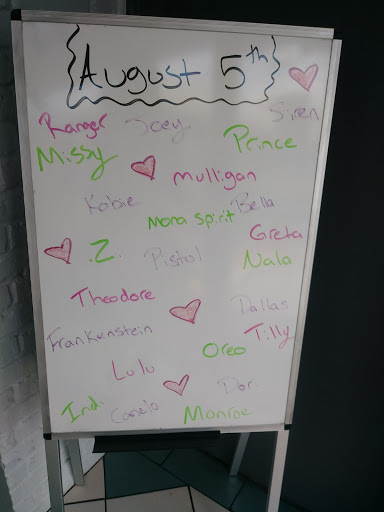 August 5th
Siren
Ranger Joey
Missy Prince
mulligan
Kobie Bella
Mona spirit
Greta
.Z. Pistol Nala
Theodore
Dallas
Frankenstein Tilly
Oreo
Lulu
Dor.
Indi Canzio Monroe